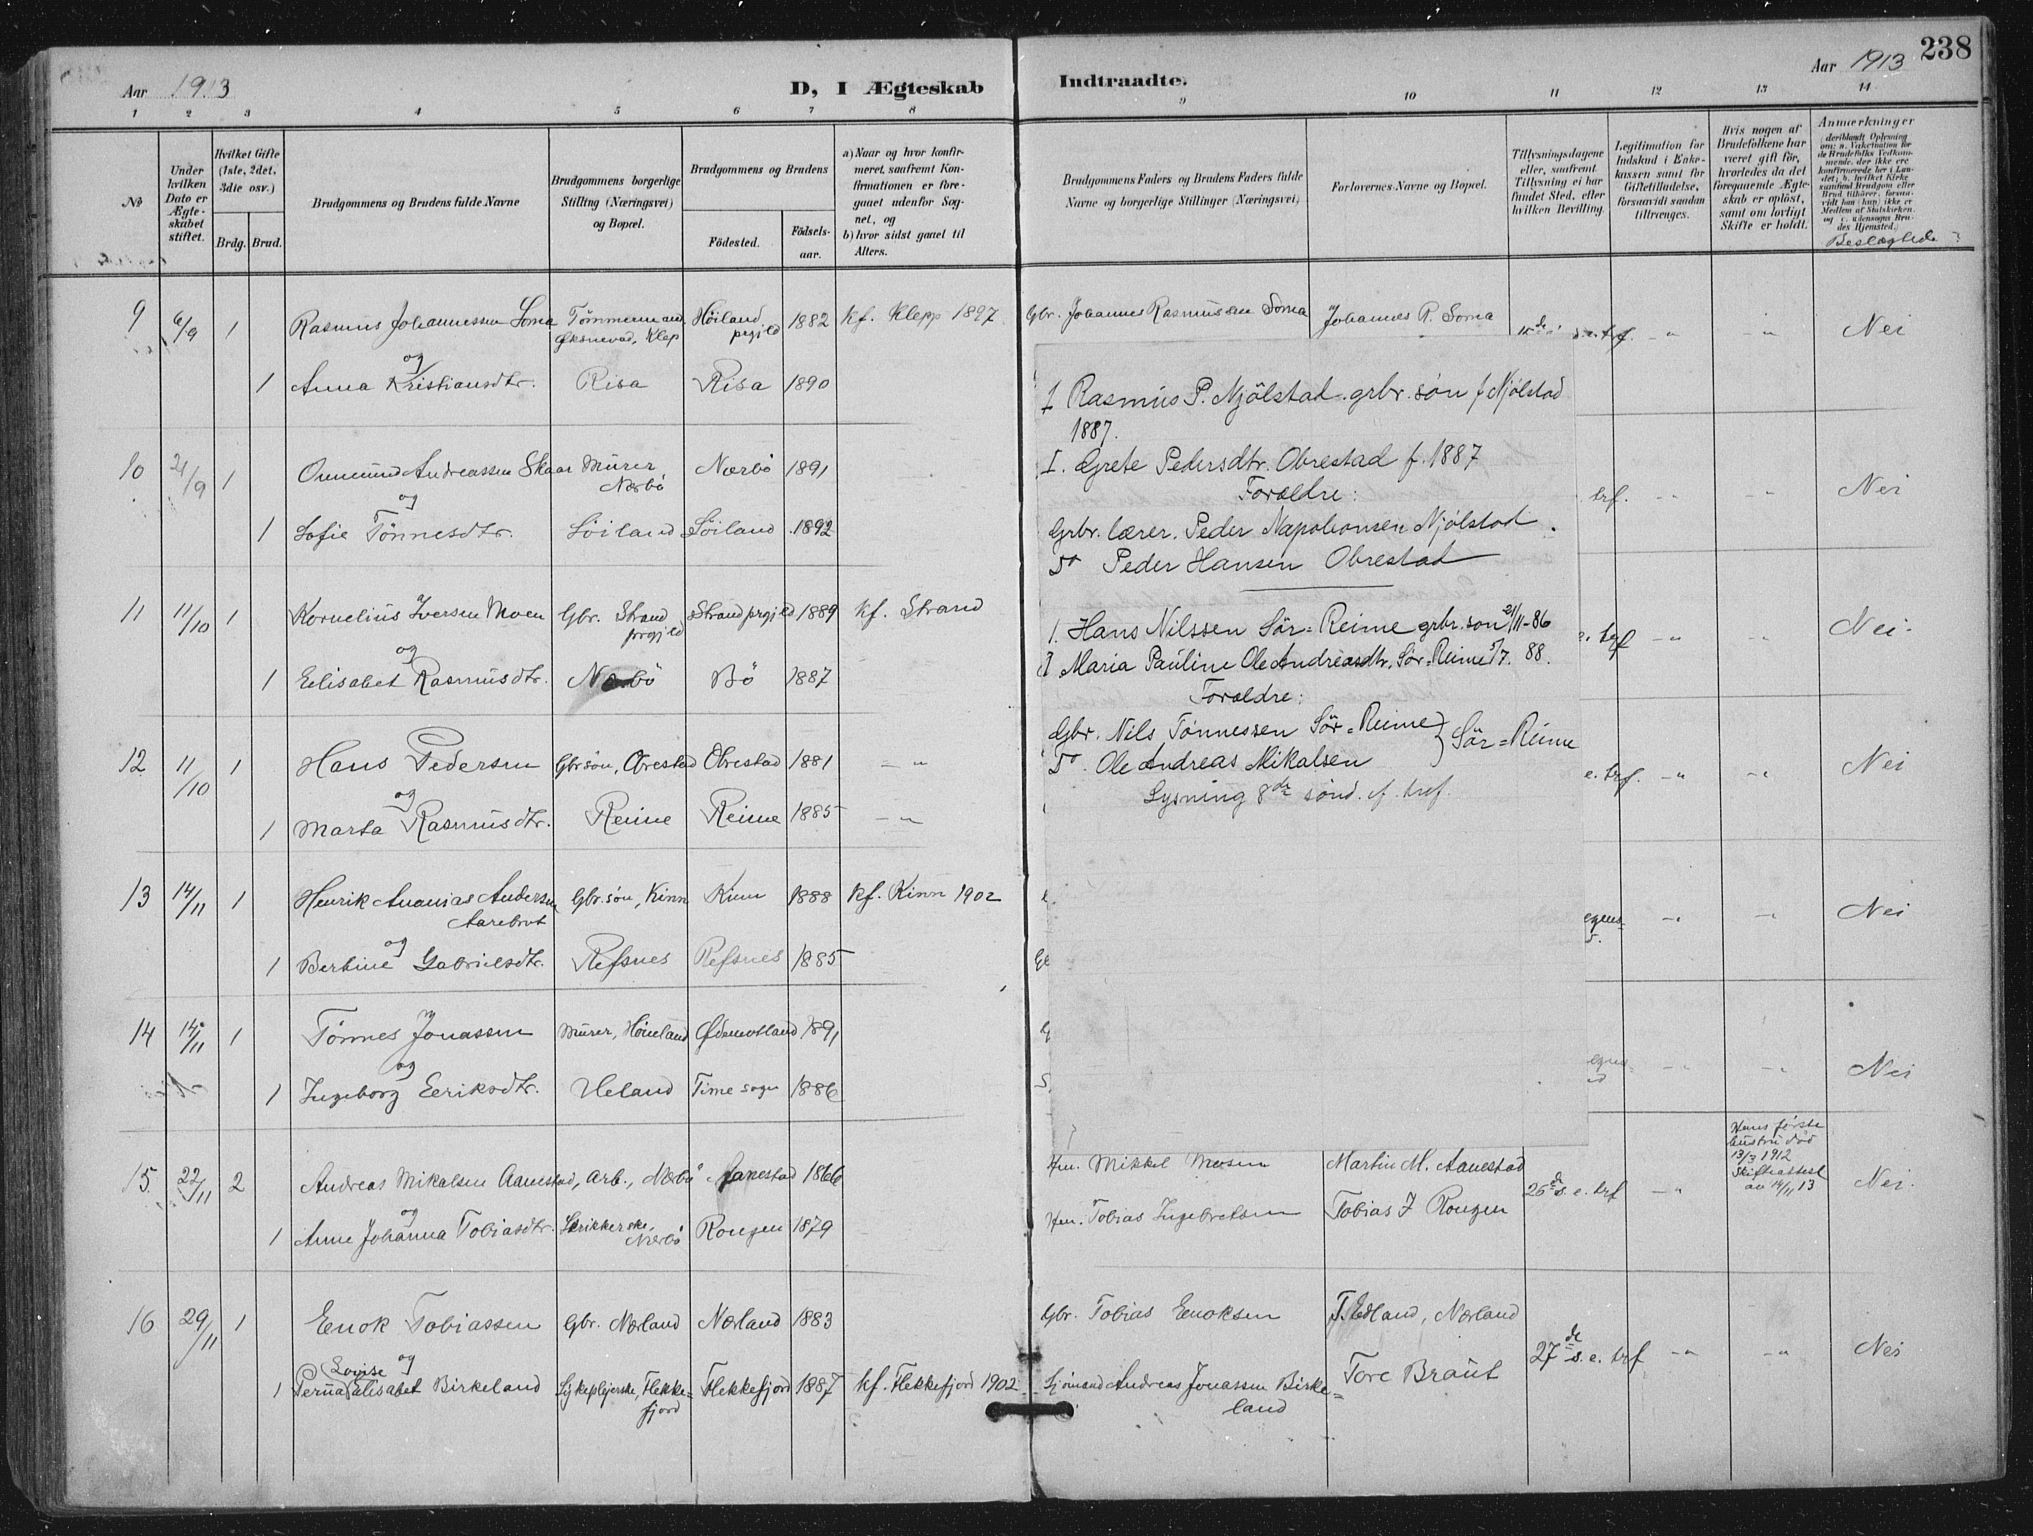 238
Aar 1913
D, I Ægteskab
Indtraadte.
Aar 1913
1 2 3 4 5 6 7 8 9 10 11 12 13 14
No
Under hvilken Dato er Ægteskabet stiftet.
Hvilket Gifte (1ste, 2det, 3die osv.)
Brdg. Brud.
Brudgommens og Brudens fulde Navne
Brudgommens borgerlige Stilling (Næringsvei) og Bopæl.
Brudgommens og Brudens
Fødested. Fødselsaar.
a) Naar og hvor konfirmeret, saafremt Konfirmationen er foregaaet udenfor Sognet, og
b) hvor sidst gaaet til Alters.
Brudgommens Faders og Brudens Faders fulde Navne og borgerlige Stillinger (Næringsvei)
Forlovernes Navne og Bopæl.
Tillysningsdagene eller, saafremt Tillysning ei har fundet Sted, efter hvilken Bevilling.
Legitimation for Indskud i Enkekassen samt for Giftetilladelse, forsaavidt saadan tiltrænges.
Hvis nogen af Brudefolkene har været gift før, hvorledes da det foregaaende Ægteskab er opløst, samt om lovligt Skifte er holdt.
Anmærkninger
Beslægtede
9 6/9 1 Rasmus Johannessen Soma Tömmermand Øksnevad, Klep Höiland prgjld 1882 kf. Klepp 1897 Gbr. Johannes Rasmussen Soma Johannes R. Soma s.e. trf. -"- -"- Nei
og
1 Anna Kristiansdtr. Risa Risa 1890
10 21/9 1 Ommund Andreassen Skaar Murer, Nærbö Nærbö 1891 trf. -"- -"- Nei
og
1 Sofie Tönnesdtr. Söiland Söiland 1892
11 11/10 1 Kornelius Iversen Moen Gbr. Strand prgjld Strand prgjld 1889 kf. Strand e. trf -"- -"- Nei.
og
1 Elisabet Rasmusdtr. Nærbö Bö 1887
12 11/10 1 Hans Pedersen Gbrsön, Obrestad Obrestad 1881 -"- e. trf. -"- -"- Nei
og
1 Marta Rasmusdtr. Reime Reime 1885 -"-
13 14/11 1 Henrik Ananias Andersen Aarebrot Gbr. sön, Kinn Kinn 1888 kf. Kinn 1902 -"- -"- Nei
og
1 Bertine Gabrielsdtr. Refsnes Refsnes 1885
14 14/11 1 Tönnes Jonassen Murer, Höieland Ødemotland 1891 -"- -"- Nei
og
1 Ingeborg Eeriksdtr. Ueland Time sogn 1886
15 22/11 2 Andreas Mikalsen Aanestad, Arb., Nærbö Aanestad 1866 Hm. Mikkel Mosen Martin M. Aanestad 26de s. e. trf -"- Hans første hustru død 13/3 1912 Skifteattest av 14/11 13 Nei.
og
1 Anne Johanna Tobiasdtr. Strikkerske, Nærbö Rongen 1879 Hm. Tobias Ingebretsen Tobias I Rongen
16 29/11 1 Enok Tobiassen Gbr. Nærland Nærland 1883 Gbr. Tobias Enoksen T. Edland, Nærland 27de s. e. trf -"- -"- Nei
og
1 Perna Lovise Elisabet Birkeland Sykeplejerske, Flekkefjord Flekkefjord 1887 kf. Flekkefjord 1902 Sjömand Andreas Jonassen Birkeland Tore Braut
I Rasmus P. Njölstad. grbr. sön f Njölstad
1887.
I. Grete Pedersdtr. Obrestad f. 1887
Forældre:
Grbr. lærer. Peder Napoleonsen Njölstad.
Do Peder Hansen Obrestad
1. Hans Nilssen Sör=Reime grbr. son 21/11-86
I Maria Pauline Ole Andreasdtr. Sör=Reime 5/7. 88.
Forældre:
Gbr. Nils Tönnessen Sör=Reime } Sör=Reime
Do. Ole Andreas Mikalsen
Lysning 8de sönd. ef. tref.